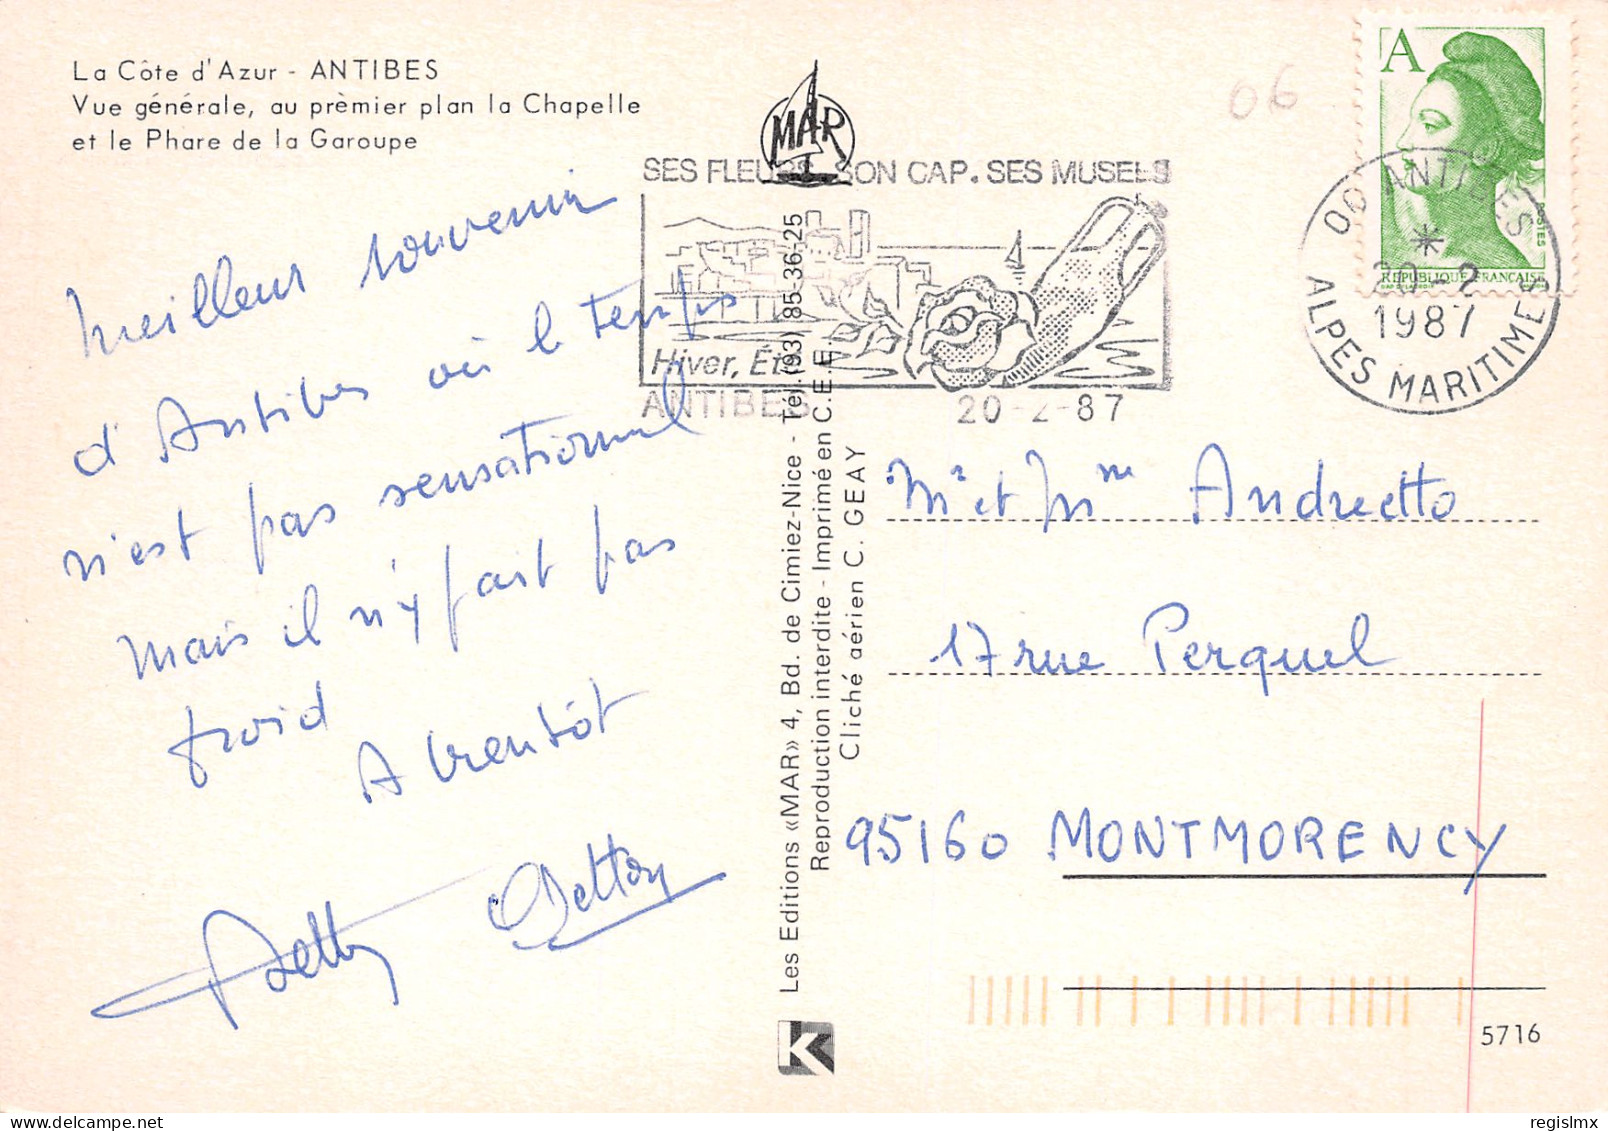 La Côte d'Azur - ANTIBES
Vue générale, au prèmier plan la Chapelle
et le Phare de la Garoupe
MAR
06
A
POSTES
REPUBLIQUE FRANÇAISE
SES FLEURS. SON CAP. SES MUSEES
Hiver, Été
ANTIBES
20-2-87
00 ANTIBES
*
20-2
1987
ALPES MARITIMES
Meilleur souvenir
d'Antibes où le temps
n'est pas sensationnel
mais il n'y fait pas
froid
A bientôt
Les Editions «MAR» 4, Bd. de Cimiez-Nice - Tél. (93) 85-36-25
Reproduction interdite - Imprimé en C.E.E.
Cliché aérien C. GEAY
Mr et Mme Andreetto
17 rue Perquel
95160 MONTMORENCY
K
5716
regislmx